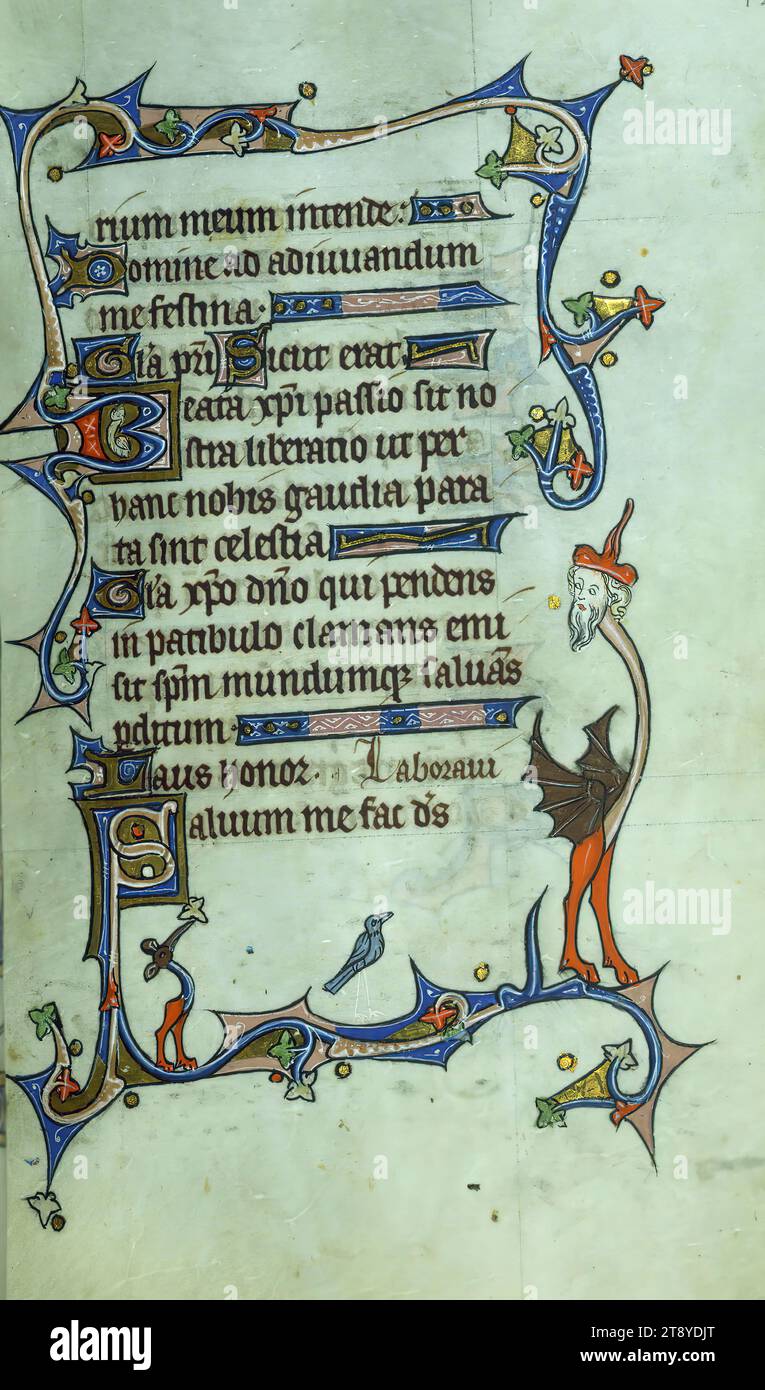 rium meum intende.
Domine ad adiuuandum
me festina.
Gl'a p'ri Sicut erat
Beata xp'i passio sit no
stra liberatio ut per
hanc nobis gaudia para
ta sint celestia
Gl'a xp'o dn'o qui pendens
in patibulo clamans emi
sit sp'm mundumq; salua's
p'ditum.
Laus honor. Laboraui
Saluum me fac d's
alamy
alamy
alamy
Image ID: 2T8YDJT
www.alamy.com